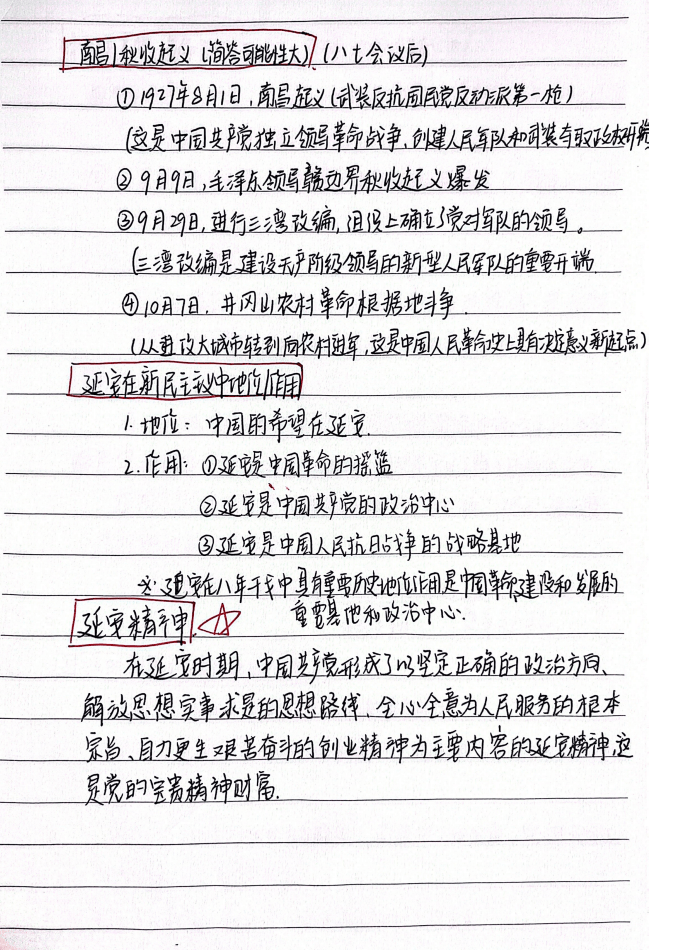 南昌/秋收起义(简答可能性大)(八七会议后)
①1927年8月1日,南昌起义(武装反抗国民党反动派第一枪)
(这是中国共产党独立领导革命战争,创建人民军队和武装夺取政权开端
②9月9日,毛泽东领导赣边界秋收起义爆发
③9月29日,进行三湾改编,组织上确立了党对军队的领导。
(三湾改编是建设无产阶级领导的新型人民军队的重要开端
④10月7日,井冈山农村革命根据地斗争.
(从进攻大城市转到向农村进军,这是中国人民革命史上具有决定意义新起点)
延安在新民主议中地位/作用
1.地位:中国的希望在延安.
2.作用:①延安是中国革命的摇篮
②延安是中国共产党的政治中心
③延安是中国人民抗日战争的战略基地
※延安在八年干戈中具有重要历史地位作用是中国革命,建设和发展的
重要基地和政治中心.
延安精神.☆
在延安时期,中国共产党形成了以坚定正确的政治方向、
解放思想实事求是的思想路线、全心全意为人民服务的根本
宗旨、自力更生艰苦奋斗的创业精神为主要内容的延安精神,这
是党的宝贵精神财富.